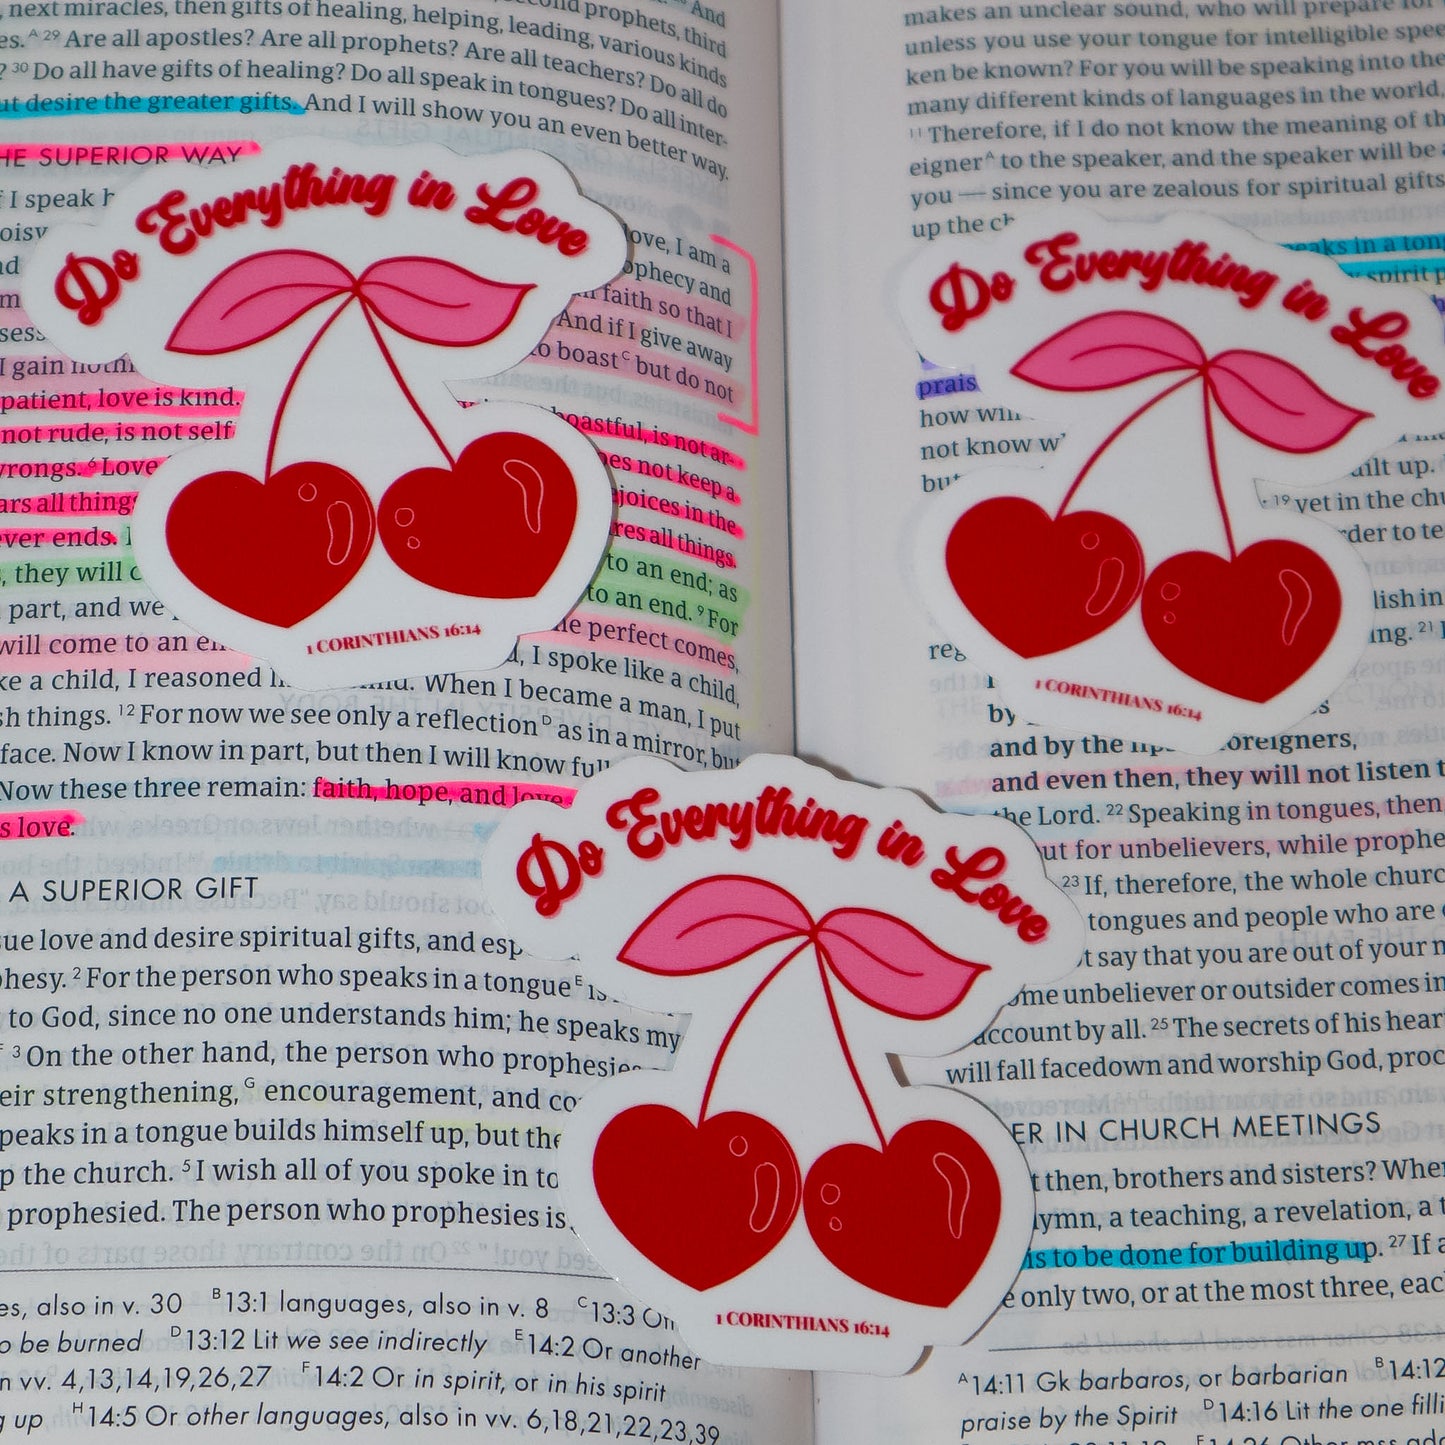 next miracles, then gifts of healing, helping, leading, various kinds
second prophets, third
And
es.ᴬ ²⁹ Are all apostles? Are all prophets? Are all teachers? Do all do
? ³⁰ Do all have gifts of healing? Do all speak in tongues? Do all inter-
ut desire the greater gifts. And I will show you an even better way.
HE SUPERIOR WAY
f I speak
love, I am a
ophecy and
faith so that I
And if I give away
to boastᶜ but do not
I gain
patient, love is kind.
boastful, is not ar-
not rude, is not self
oes not keep a
wrongs. ⁶ Love
ejoices in the
ars all things
res all things.
ver ends.
, they will
to an end; as
part, and we
to an end. ⁹ For
will come to an
he perfect comes,
ke a child, I reasoned
I spoke like a child,
When I became a man, I put
sh things. ¹² For now we see only a reflectionᴰ as in a mirror, but
face. Now I know in part, but then I will know
Now these three remain: faith, hope, and love
s love.
A SUPERIOR GIFT
sue love and desire spiritual gifts, and
phesy. ² For the person who speaks in a tongueᴱ is
to God, since no one understands him; he speaks
ꟳ ³ On the other hand, the person who prophesies
eir strengthening,ᴳ encouragement, and
peaks in a tongue builds himself up, but the
p the church. ⁵ I wish all of you spoke in
prophesied. The person who prophesies is
es, also in v. 30 ᴮ13:1 languages, also in v. 8 ᶜ13:3
o be burned ᴰ13:12 Lit we see indirectly ᴱ14:2 Or another
n vv. 4,13,14,19,26,27 ꟳ14:2 Or in spirit, or in his spirit
g up ᴴ14:5 Or other languages, also in vv. 6,18,21,22,23,39
makes an unclear sound, who will prepare for
unless you use your tongue for intelligible
ken be known? For you will be speaking into the
many different kinds of languages in the world,
¹¹ Therefore, if I do not know the meaning of
eignerᴬ to the speaker, and the speaker will be
you — since you are zealous for spiritual gifts
up the
peaks in a
spirit
prais
how will
not know
built up.
but
¹⁹ yet in the
order to
lish in
ing. ²¹
by
and by the foreigners,
and even then, they will not listen
the Lord. ²² Speaking in tongues, then
but for unbelievers, while
²³ If, therefore, the whole
tongues and people who are
say that you are out of your
some unbeliever or outsider comes in
account by all. ²⁵ The secrets of his
will fall facedown and worship God,
ER IN CHURCH MEETINGS
then, brothers and sisters?
hymn, a teaching, a revelation, a
is to be done for building up. ²⁷ If
e only two, or at the most three,
ᴬ14:11 Gk barbaros, or barbarian ᴮ14:12
praise by the Spirit ᴰ14:16 Lit the one
Do Everything in Love
1 CORINTHIANS 16:14
Do Everything in Love
1 CORINTHIANS 16:14
Do Everything in Love
1 CORINTHIANS 16:14